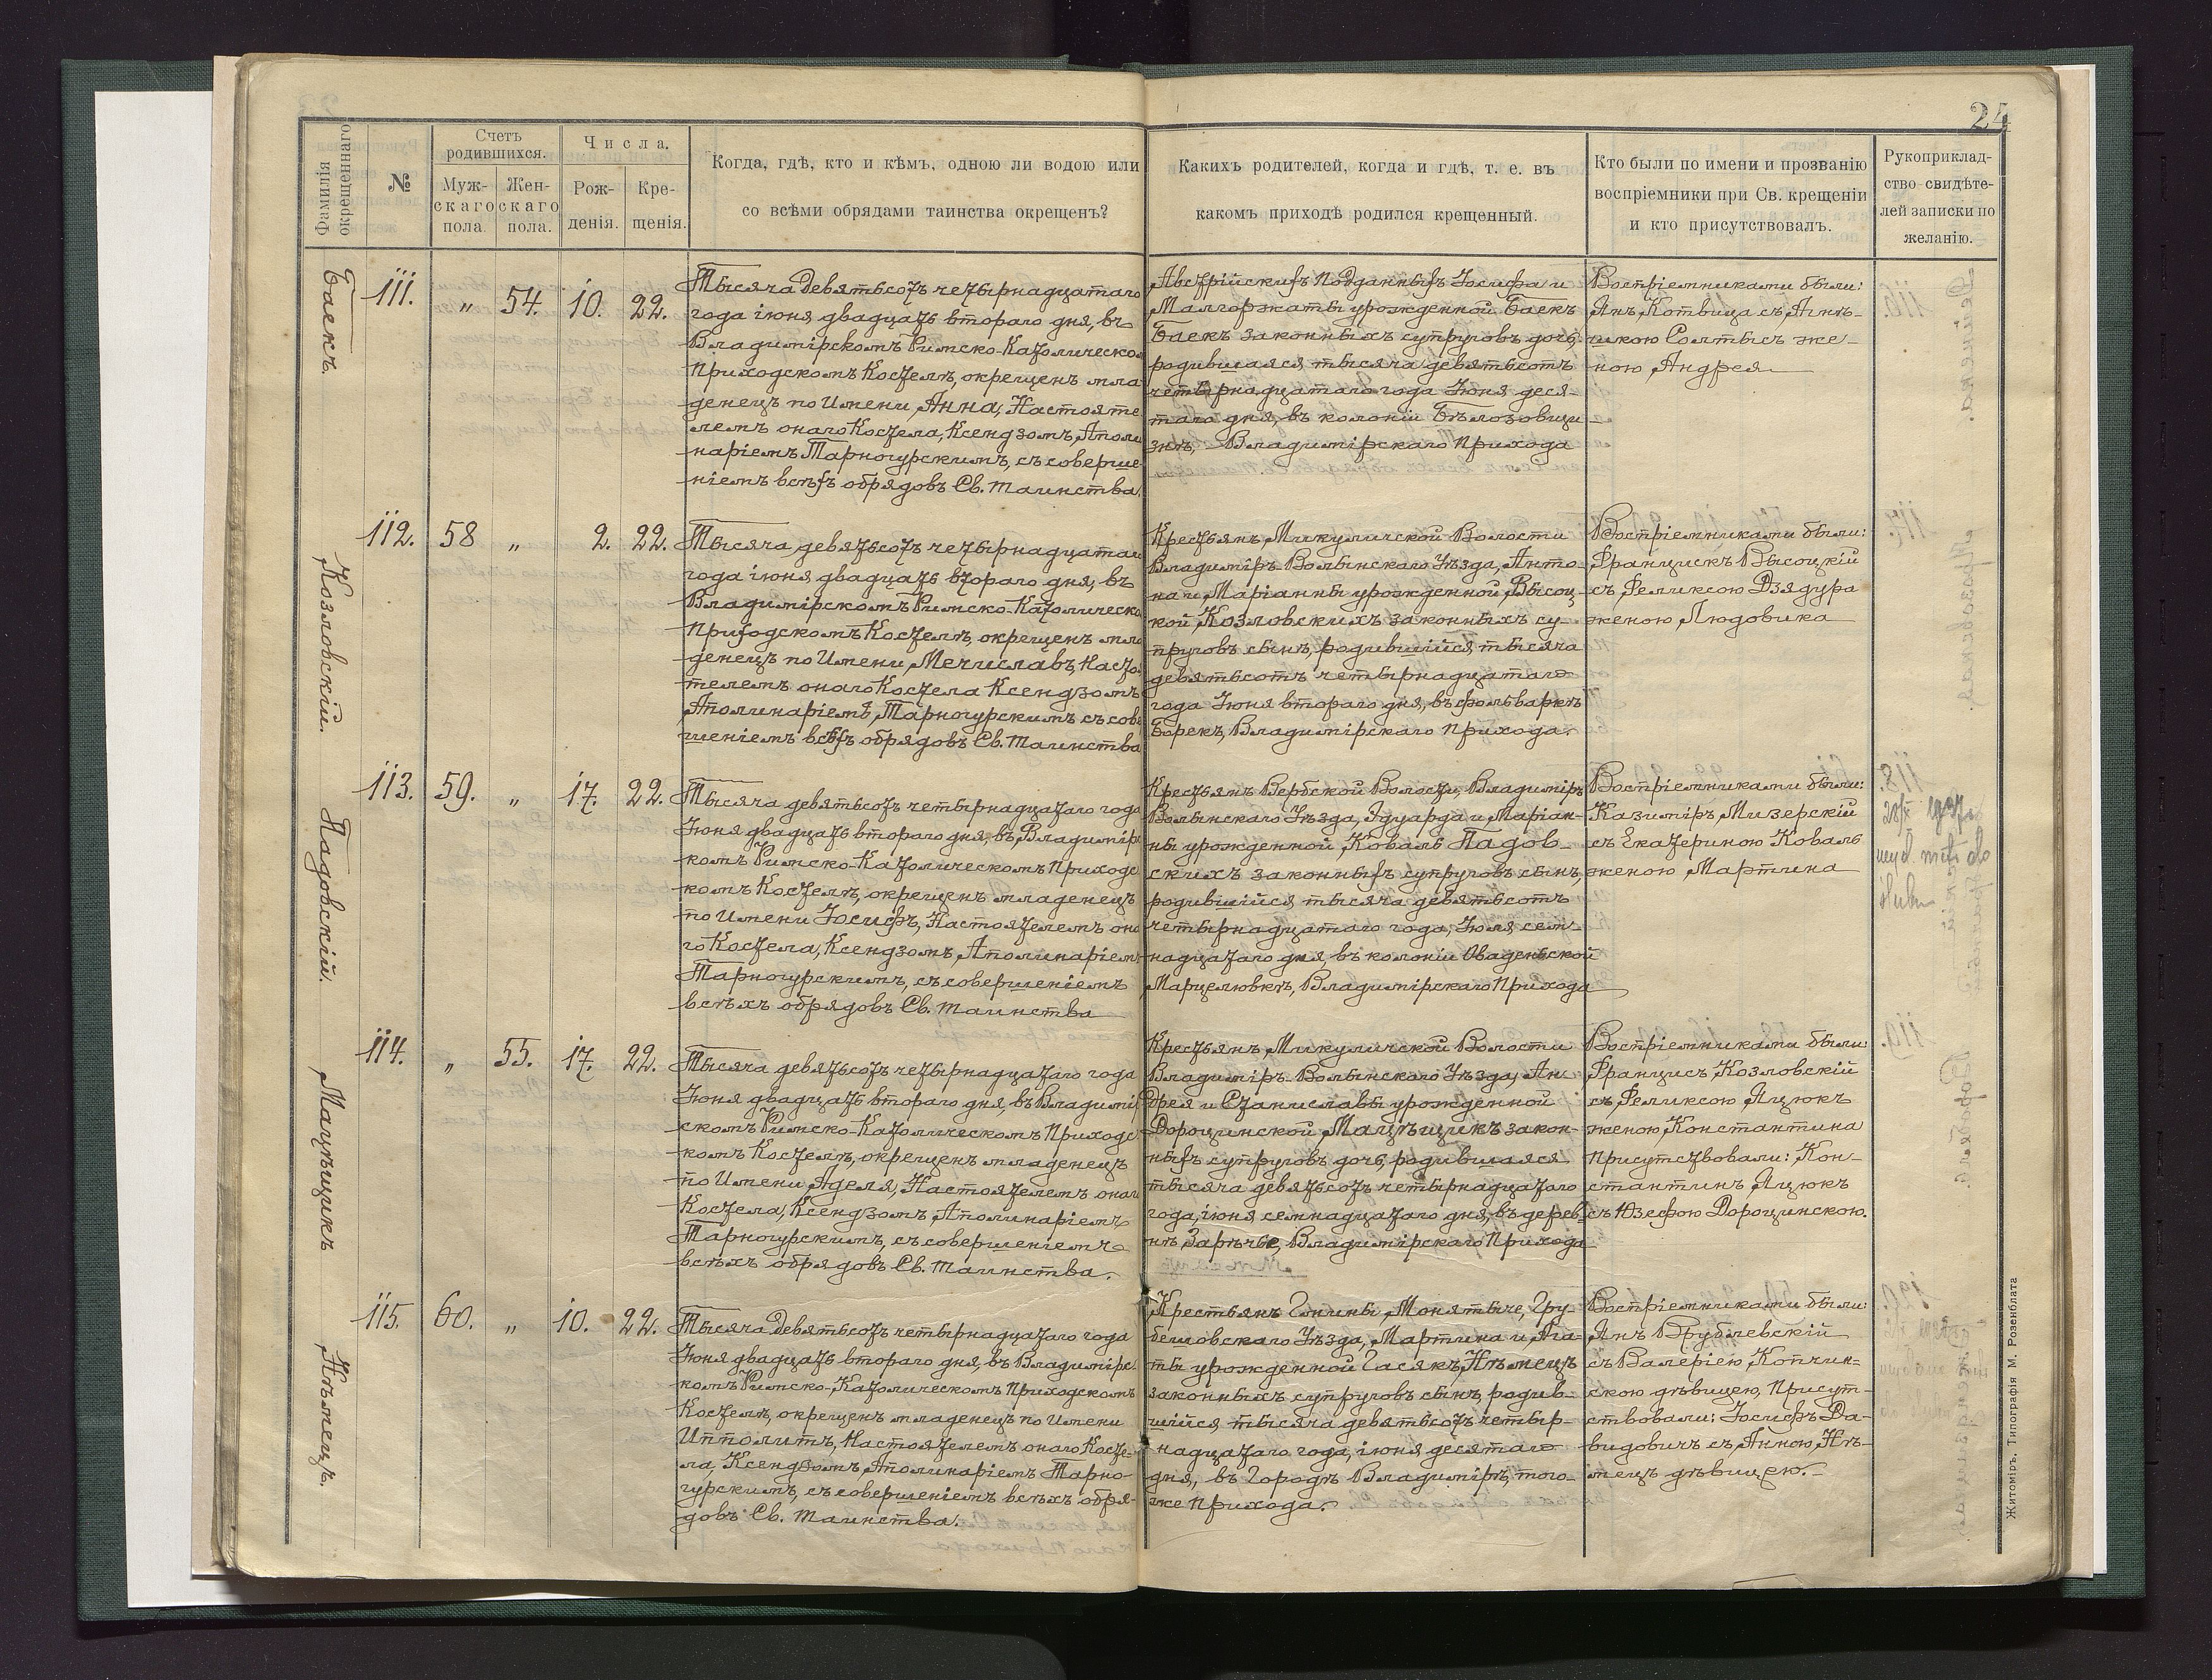 24
Фамилія окрещеннаго
№
Счетъ родившихся.
Мужскаго пола.
Женскаго пола.
Числа.
Рожденія.
Крещенія.
Когда, гдѣ, кто и кѣмъ, одною ли водою или
со всѣми обрядами таинства окрещенъ?
Какихъ родителей, когда и гдѣ, т. е. въ
какомъ приходѣ родился крещенный.
Кто были по имени и прозванію
воспріемники при Св. крещеніи
и кто присутствовалъ.
Рукоприклад-
ство свидѣте-
лей записки по
желанію.
Баекъ.
111. „ 54. 10. 22.
Тысяча девятьсотъ четырнадцатаго
года іюня двадцать втораго дня, въ
Владимірскомъ Римско-Католическо
Приходскомъ Костелѣ, окрещенъ мла
денецъ по Имени Анна, Настояте
лемъ онаго Костела, Ксендзомъ, Аполи
наріемъ Тарногурскимъ, съ соверше
ніемъ всѣхъ обрядовъ Св. Таинства.
Австрійскихъ Подданныхъ Іосифа и
Малгоржаты урожденной Баекъ
Баекъ законныхъ супруговъ дочь,
родившаяся тысяча девятьсотъ
четырнадцатаго года Іюня деся-
таго дня, въ колоніи Бѣлозовщи-
знѣ, Владимірскаго Прихода
Воспріемниками были:
Янъ Котвица съ Агнѣ-
шкою Солтысъ же-
ною Андрея
Козловскій.
112. 58 „ 2. 22.
Тысяча девятьсотъ четырнадцатаго
года іюня двадцать втораго дня, въ
Владимірскомъ Римско-Католическо
Приходскомъ Костелѣ, окрещенъ мла
денецъ по Имени, Мечиславъ, Насто
телемъ онаго Костела Ксендзомъ
Аполинаріемъ, Тарногурскимъ съ сове
шеніемъ всѣхъ обрядовъ Св. Таинства
Крестьянъ Микуличской Волости
Владиміръ-Волынскаго Уѣзда, Анто-
на и Маріанны урожденной Высоц-
кой, Козловскихъ законныхъ су-
пруговъ сынъ, родившійся тысяча
девятьсотъ четырнадцатаго
года Іюня втораго дня, въ фольваркѣ
Борекъ, Владимірскаго Прихода.
Воспріемниками были:
Францискъ Высоцкій
съ Феликсою Дзядура
женою Людовика
Падовскій.
113. 59. „ 17. 22.
Тысяча девятьсотъ четырнадцатаго года
Іюня двадцать втораго дня, въ Владимір
комъ Римско-Католическомъ Приходс
комъ Костелѣ, окрещенъ младенецъ
по Имени Іосифъ, Настоятелемъ она
го Костела, Ксендзомъ, Аполинаріемъ
Тарногурскимъ, съ совершеніемъ
всѣхъ обрядовъ Св. Таинства
Крестьянъ Вербской Волости, Владиміръ
Волынскаго Уѣзда, Эдуарда и Маріан-
ны урожденной, Коваль Падов-
скихъ законныхъ супруговъ сынъ,
родившійся тысяча девятьсотъ
четырнадцатаго года, Іюня сем-
надцатаго дня, въ колоніи Оваденской
Марцелювкѣ, Владимірскаго Прихода
Воспріемниками были:
Казиміръ Мизерскій
съ Екатериною Коваль
женою Мартина
Мацѣщикъ
114. „ 55. 17. 22.
Тысяча девятьсотъ четырнадцатаго года
Іюня двадцать втораго дня, въ Владимір
скомъ Римско-Католическомъ Приходс
комъ Костелѣ, окрещенъ младенецъ
по Имени Аделя, Настоятелемъ онаго
Костела, Ксендзомъ Аполинаріемъ
Тарногурскимъ, съ совершеніемъ
всѣхъ обрядовъ Св. Таинства.
Крестьянъ Микуличской Волости
Владиміръ-Волынскаго Уѣзда, Ан-
дрея и Станиславы урожденной
Дорощинской Мацѣщикъ закон-
ныхъ супруговъ дочь, родившаяся
тысяча девятьсотъ четырнадцатаго
года, іюня семнадцатаго дня, въ дерев-
нѣ Зарѣчье, Владимірскаго Прихода
Воспріемниками были:
Францисъ Козловскій
съ Феликсою Яцюкъ
женою Константина
Присутствовали: Кон-
стантинъ Яцюкъ
съ Юзефою Дорощинскою.
Нѣмецъ.
115. 60. „ 10. 22.
Тысяча девятьсотъ четырнадцатаго года
Іюня двадцать втораго дня, въ Владимірс
комъ Римско-Католическомъ Приходскомъ
Костелѣ, окрещенъ младенецъ по Имени
Ипполитъ, Настоятелемъ онаго Косте-
ла, Ксендзомъ, Аполинаріемъ Тарно-
гурскимъ, съ совершеніемъ всѣхъ обря-
довъ Св. Таинства.
Крестьянъ Гмины Монятыче, Гру-
бешовскаго Уѣзда, Мартина и Ага-
ты урожденной Гасякъ, Нѣмецъ
законныхъ супруговъ сынъ, родив-
шійся тысяча девятьсотъ четыр-
надцатаго года, іюня десятаго
дня, въ Городѣ Владимірѣ, того-
же Прихода.
Воспріемниками были:
Янъ Врублевскій
съ Валеріею Копчин-
скою дѣвицею, Присут-
ствовали: Іосифъ Да-
видовичъ съ Анною Нѣ-
мецъ дѣвицею.
Житоміръ, Типографія М. Розенблата